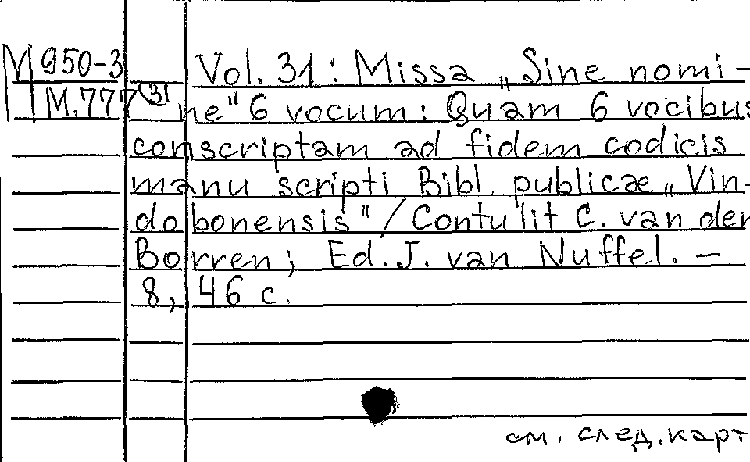 М 950-3 Vol. 31: Missa „Sine nomi-
М.777(31 ne" 6 vocum: Quam 6 vocibus
conscriptam ad fidem codicis
manu scripti Bibl. publicæ „Vin-
dobonensis" / Contulit C. van der
Borren; Ed. J. van Nuffel. –
8, 46 c.
см. след. карт